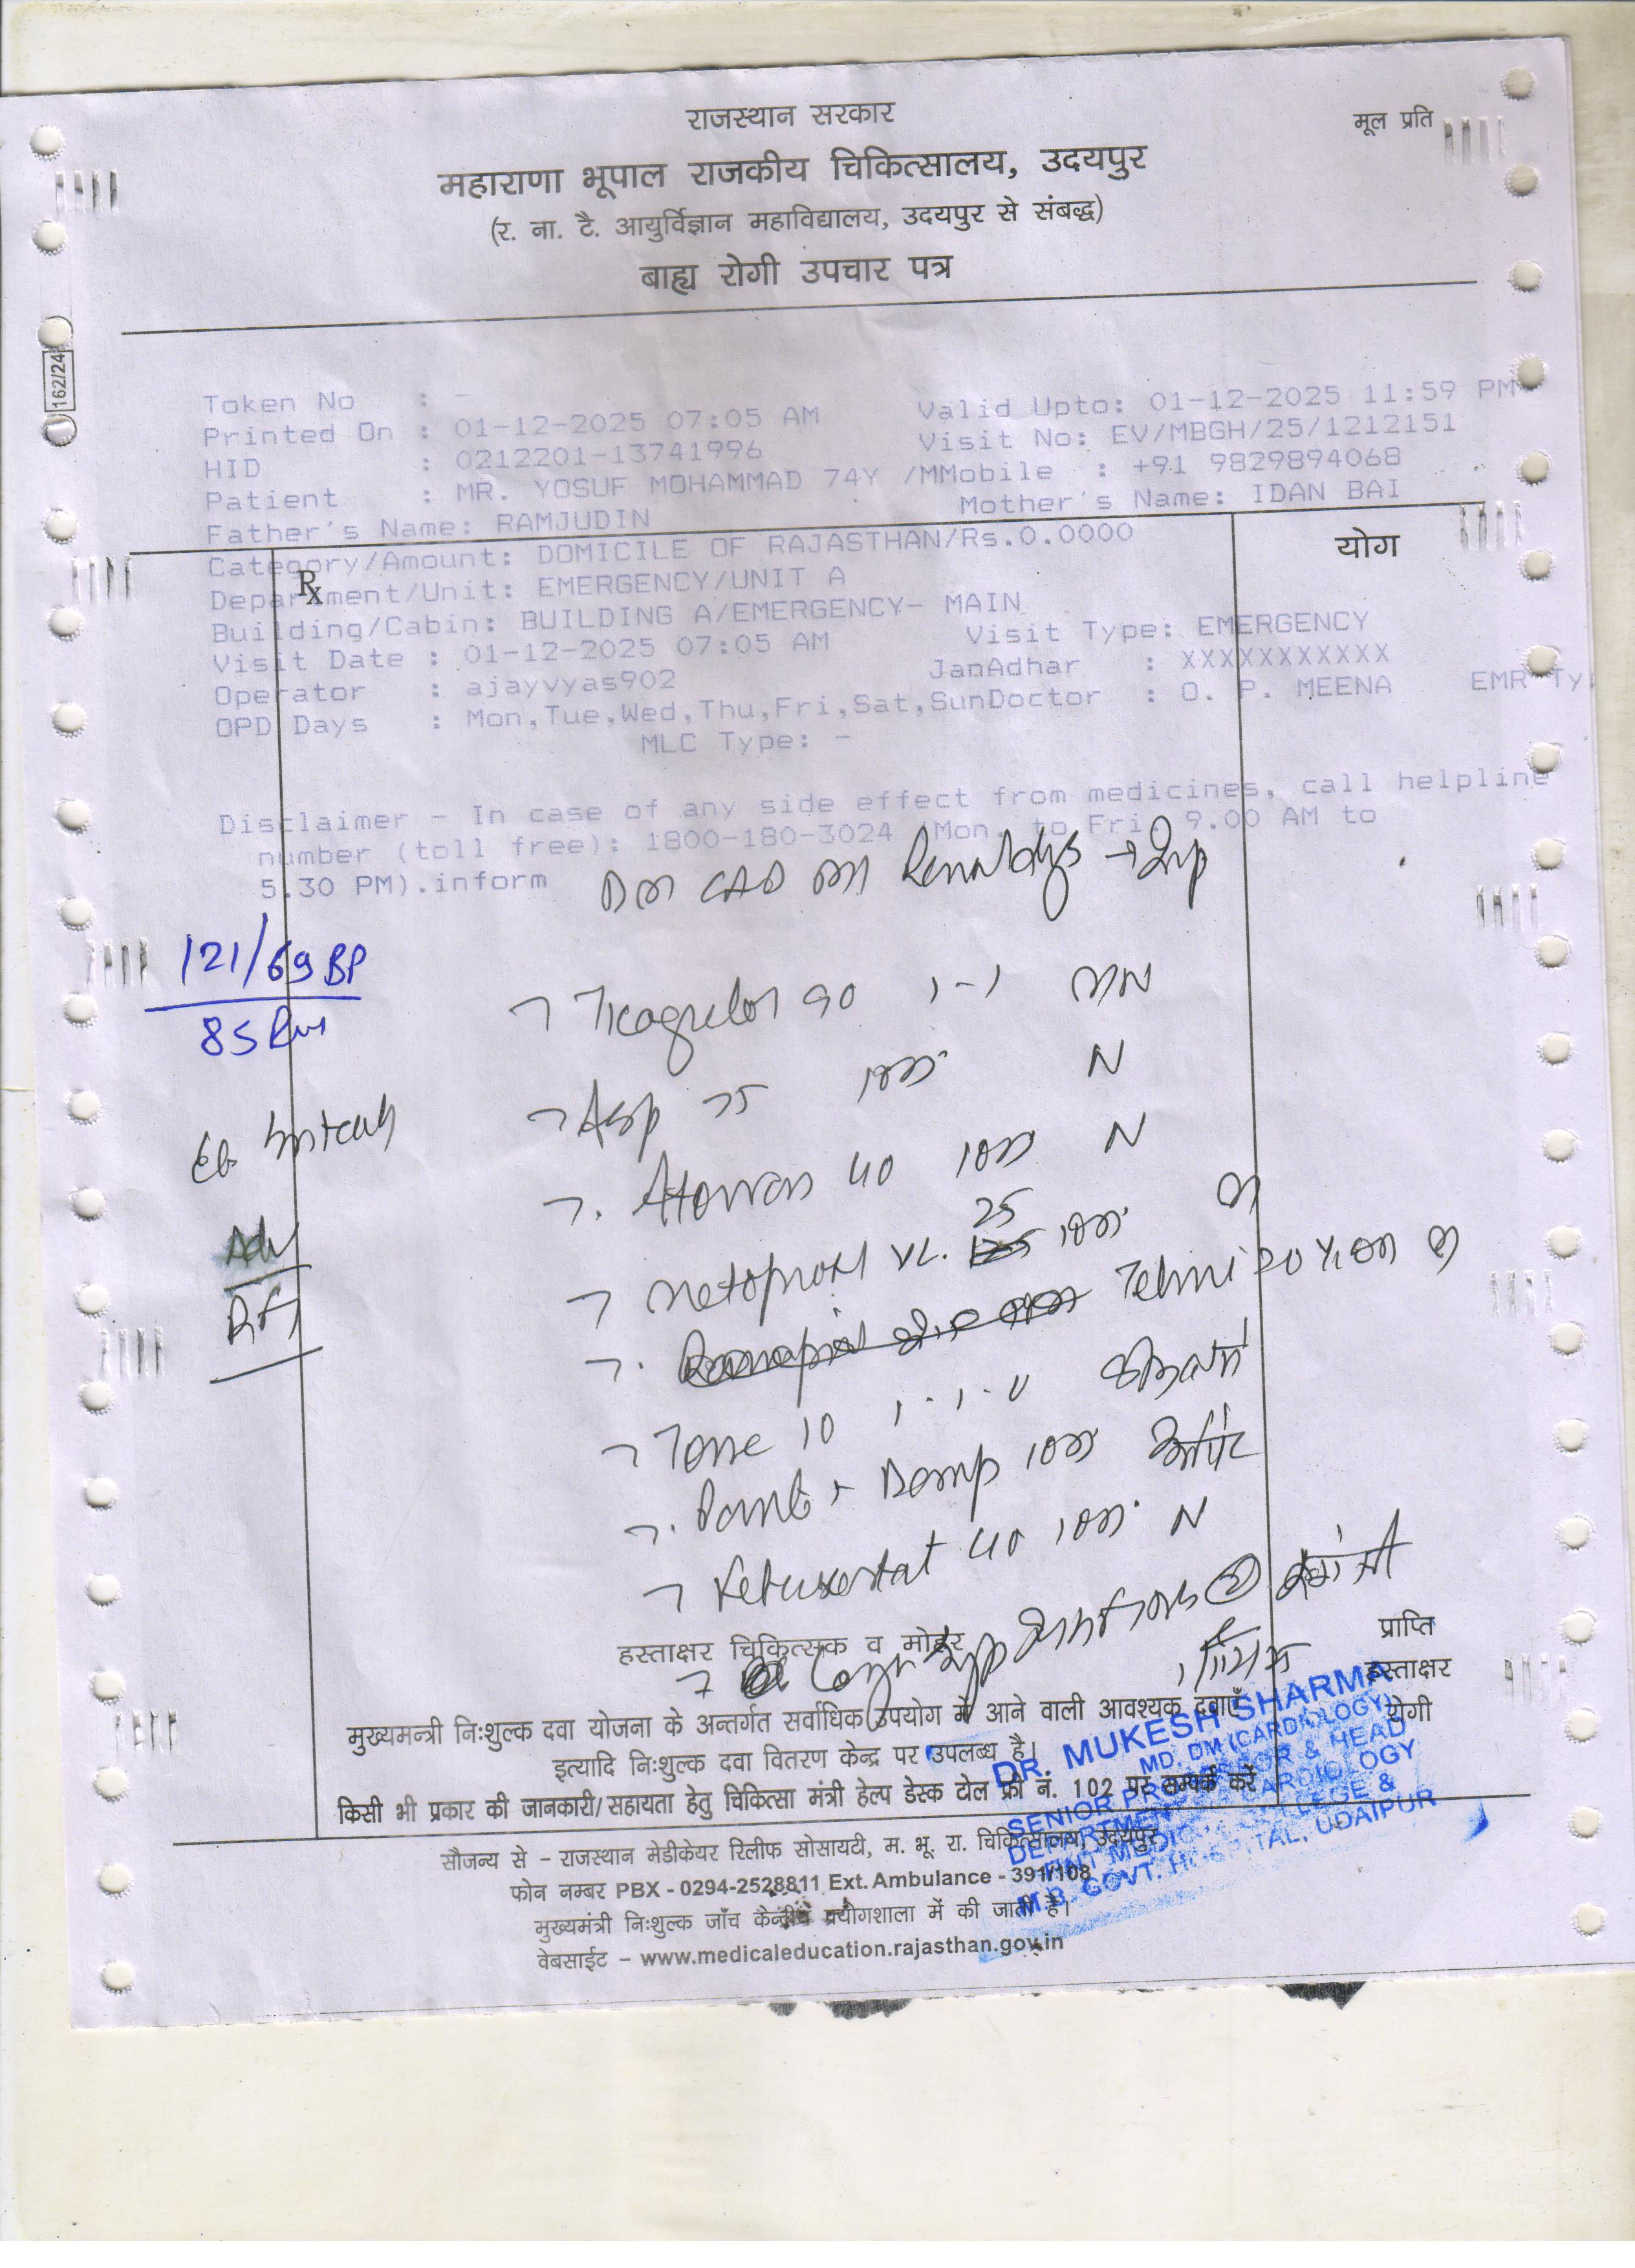 राजस्थान सरकार
मूल प्रति
महाराणा भूपाल राजकीय चिकित्सालय, उदयपुर
(र. ना. टै. आयुर्विज्ञान महाविद्यालय, उदयपुर से संबद्ध)
बाह्य रोगी उपचार पत्र
162/24
Token No : -
Printed On : 01-12-2025 07:05 AM Valid Upto: 01-12-2025 11:59 PM
HID : 0212201-13741996 Visit No: EV/MBGH/25/1212151
Patient : MR. YOSUF MOHAMMAD 74Y /MMobile : +91 9829894068
Father's Name: RAMJUDIN Mother's Name: IDAN BAI
Category/Amount: DOMICILE OF RAJASTHAN/Rs.0.0000
योग
Rx
Department/Unit: EMERGENCY/UNIT A
Building/Cabin: BUILDING A/EMERGENCY- MAIN
Visit Date : 01-12-2025 07:05 AM Visit Type: EMERGENCY
Operator : ajayvyas902 JanAdhar : XXXXXXXXXXX
OPD Days : Mon,Tue,Wed,Thu,Fri,Sat,SunDoctor : O. P. MEENA EMR Ty
MLC Type: -
Disclaimer - In case of any side effect from medicines, call helpline
number (toll free): 1800-180-3024 (Mon. to Fri. 9.00 AM to
5.30 PM).inform
DM CAD
121/69 BP
85
Ticagrelor 90 1-1 MN
Asp 75 1OD N
Atorvas 40 1OD N
Metoprolol XL 25 1OD M
Adv
RFT
Telmi 20 M
Tone 10 1-1-0
Panto + Domp 1OD
Febuxostat 40 1OD N
हस्ताक्षर चिकित्सक व मोहर
प्राप्ति
हस्ताक्षर
रोगी
मुख्यमन्त्री निःशुल्क दवा योजना के अन्तर्गत सर्वाधिक उपयोग में आने वाली आवश्यक दवाएँ
इत्यादि निःशुल्क दवा वितरण केन्द्र पर उपलब्ध है।
किसी भी प्रकार की जानकारी/सहायता हेतु चिकित्सा मंत्री हेल्प डेस्क टोल फ्री नं. 102 पर सम्पर्क करें
DR. MUKESH SHARMA
MD, DM (CARDIOLOGY)
SENIOR PROFESSOR & HEAD
DEPARTMENT CARDIOLOGY
RNT MEDICAL COLLEGE &
M.B. GOVT. HOSPITAL, UDAIPUR
सौजन्य से – राजस्थान मेडीकेयर रिलीफ सोसायटी, म. भू. रा. चिकित्सालय, उदयपुर
फोन नम्बर PBX - 0294-2528811 Ext. Ambulance - 391/108
मुख्यमंत्री निःशुल्क जाँच केन्द्रीय प्रयोगशाला में की जाती है।
वेबसाईट – www.medicaleducation.rajasthan.gov.in